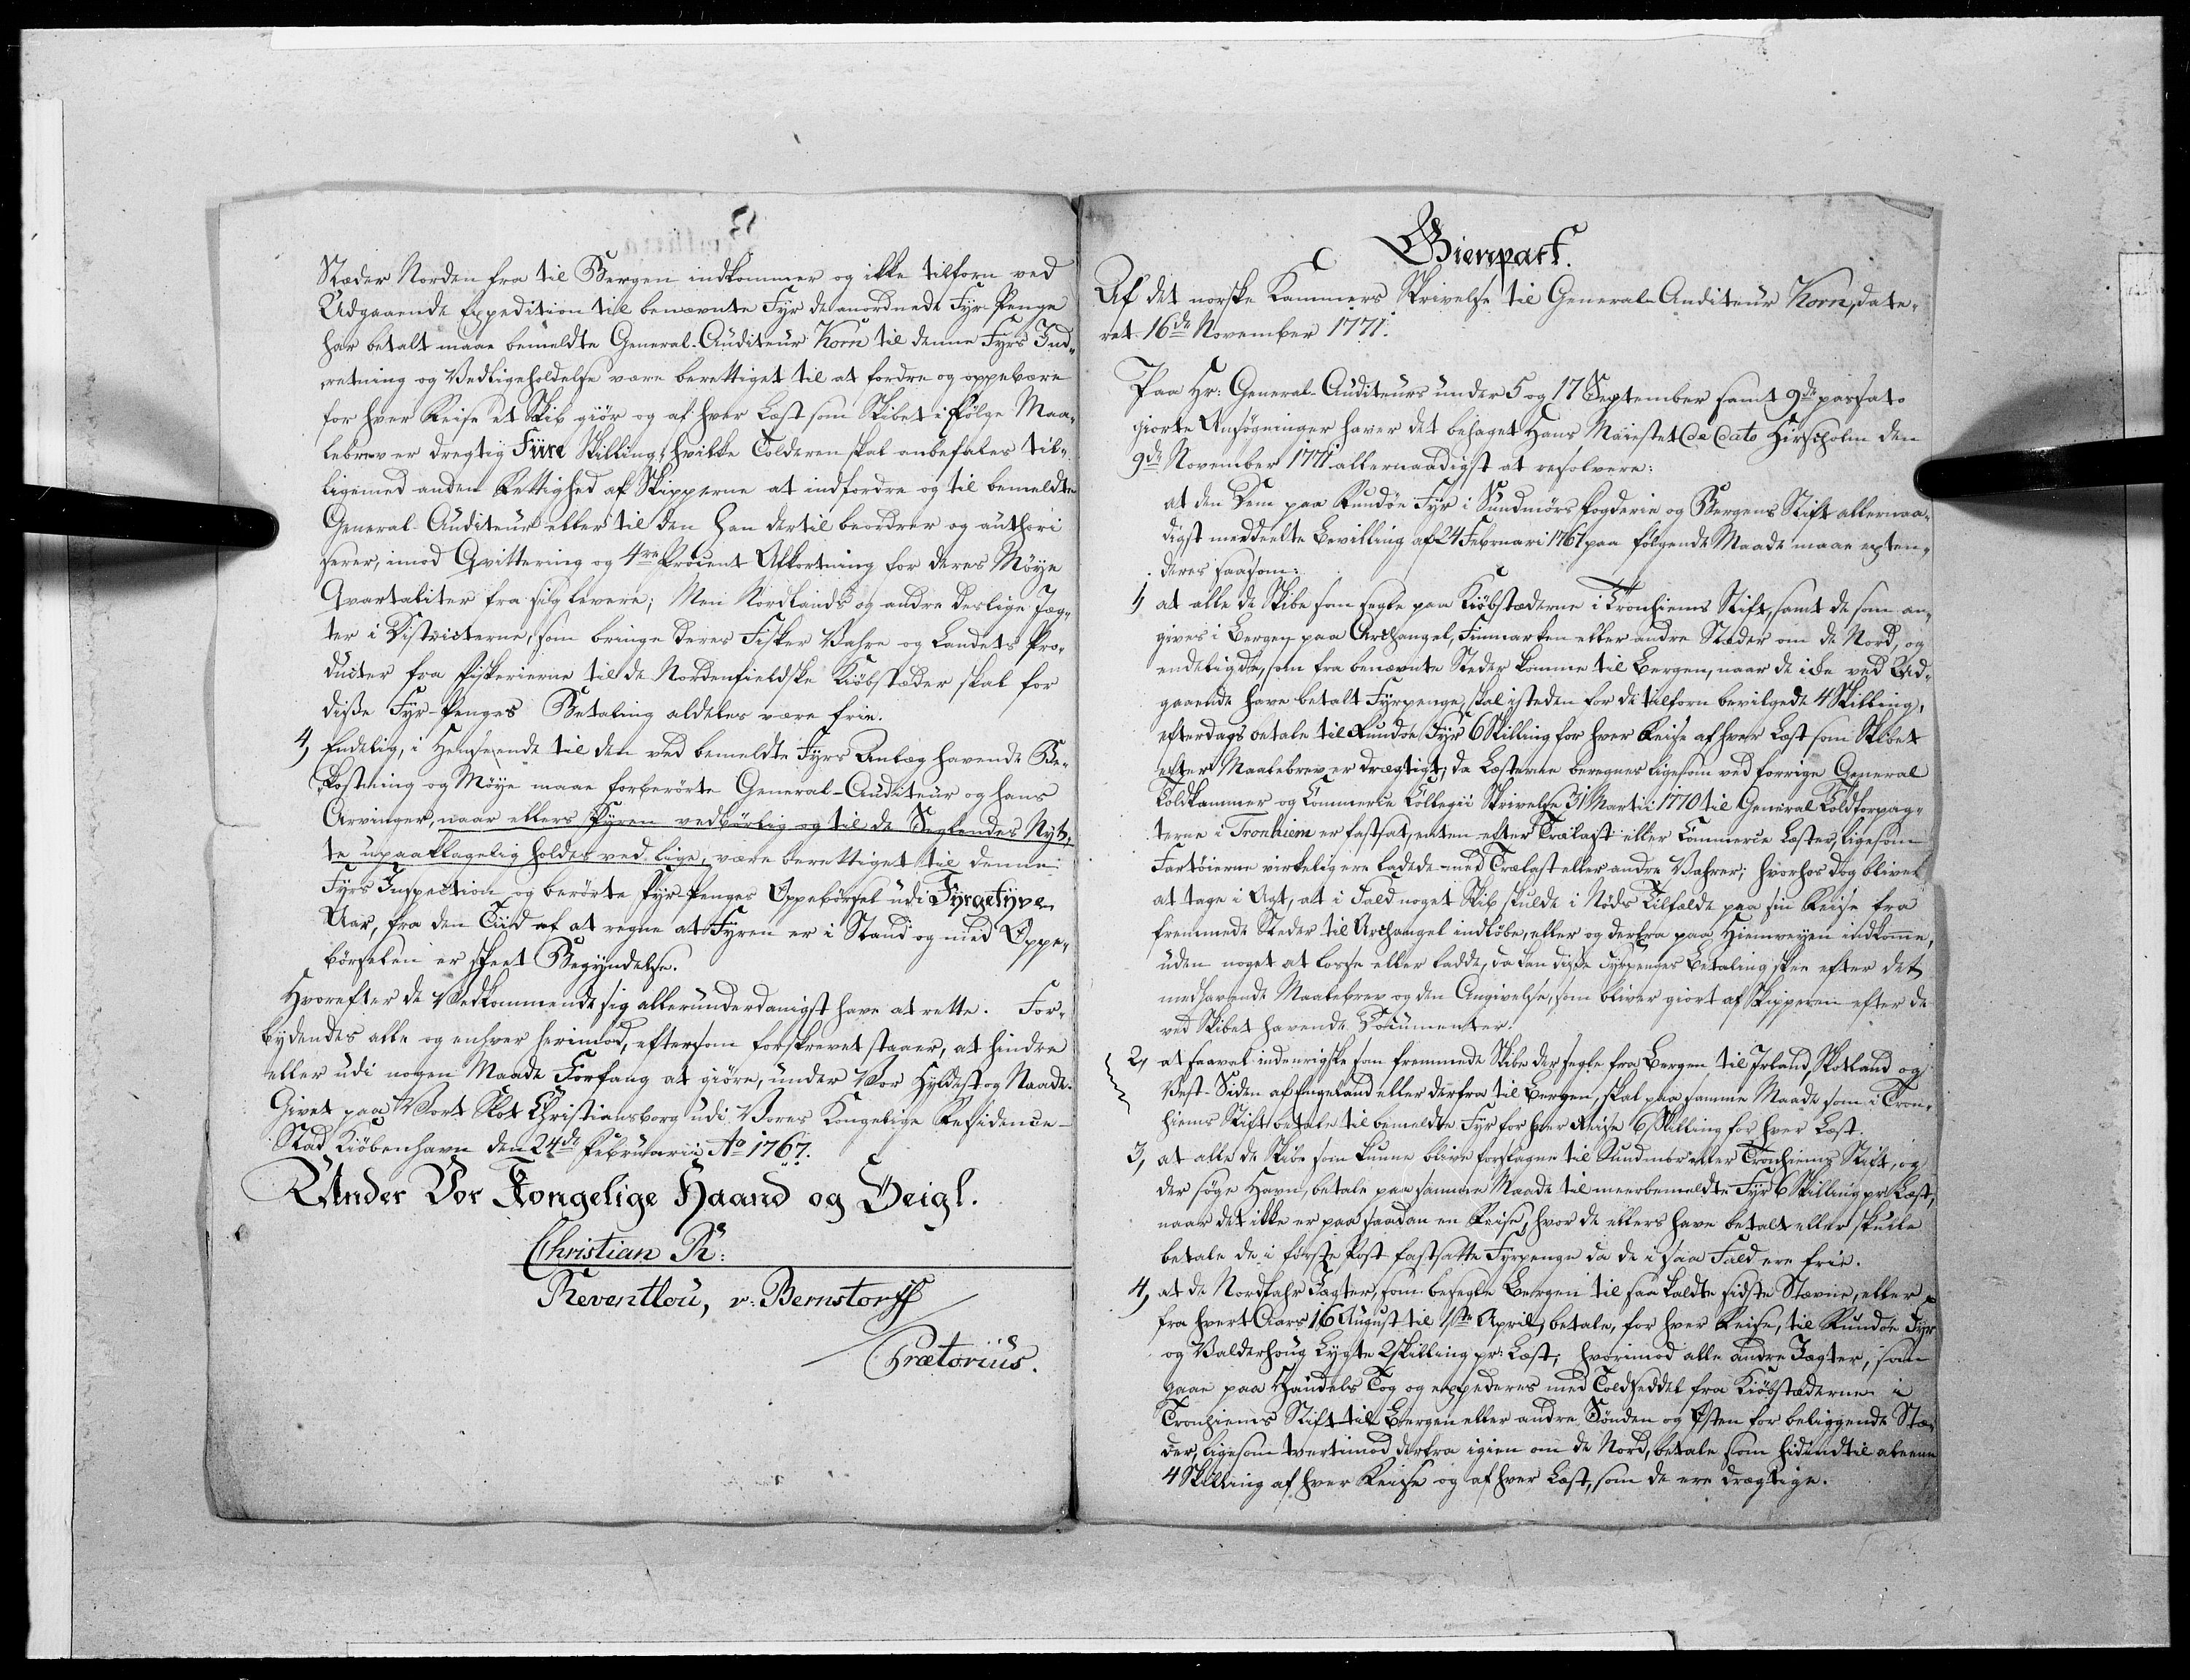 Stæder Norden fra til Bergen indkommer og ikke tilforn ved
Udgaaende Expedition til benævnte Fyr de anordnede Fyr-Penge
har betalt maae bemeldte General-Auditeur Korn til denne Fyrs Ind-
retning og Vedligeholdelse være berettiget til at fordre og oppebære
for hver Reise et Skib giør og af hver Læst som Skibet ifølge Maa-
lebrev er dregtig Fiire Skilling, hvilke Tolderen skal anbefales til-
ligemed anden Rettighed af Skipperne at indfordre og til bemeldte
General-Auditeur eller til den han dertil beordrer og authori
serer, imod Qvittering og 4re Procent Afkortning for deres Møye
Qvartaliter fra sig levere; Men Nordlands og andre deslige Jæg-
ter i Districterne, som bringe deres Fisker Vahre og Landets Pro-
ducter fra Fiskerierne til de Nordenfieldske Kiøbstæder skal for
disse Fyr-Penges Betaling aldeles være frie.
4, Endelig, i Henseende til den ved bemeldte Fyrs Anlæg havende Be-
kostning og Møye maae forberørte General-Auditeur og hans
Arvinger, naar ellers Fyren vedbørlig og til de Seglendes Nyt-
te upaaklagelig holdes ved lige, være berettiget til denne
Fyrs Inspection og berørte Fyr-Penges Oppebørsel udi Fyrgetyve
Aar, fra den Tiid af at regne at Fyren er i Stand og med Oppe-
børselen er skeet Begyndelse.
Hvorefter de Vedkommende sig allerunderdanigst have at rette. For-
bydendes alle og enhver herimod, eftersom forskrevet staaer, at hindre
eller udi nogen Maade Forfang at giøre, under Vor Hyldest og Naade.
Givet paa Vort Slot Christiansborg udi Vores Kongelige Residence-
Stad Kiøbenhavn den 24de Februarii Ao 1767.
Under Vor Kongelige Haand og Seigl.
Christian R:
Reventlou, v: Bernstorff
Prætorius.
Gienpart.
Af det norske Kammers Skrivelse til General-Auditeur Korn, date-
ret 16de November 1771.
Paa Hr: General-Auditeurs under 5 og 17 September samt 9de passato
giorte Ansøgninger haver det behaget Hans Maiestet de dato Hirscholm den
9de November 1771 allernaadigst at resolvere:
at den Dem paa Rundøe Fyr i Sundmørs Fogderie og Bergens Stift allernaa-
digst meddeelte Bevilling af 24 Februari 1767 paa følgende Maade maae exten-
deres saasom:
1, at alle de Skibe som segle paa Kiøbstæderne i Tronhiems Stift, samt de som an-
gives i Bergen paa Archangel, Finmarken eller andre Stæder om de Nord, og
endelig de, som fra benævnte Steder komme til Bergen, naar de icke ved Ud-
gaaende have betalt Fyrpenge, skal isteden for de tilforn bevilgede 4 Skilling,
efterdags betale til Rundøe Fyr 6 Skilling for hver Reise af hver Læst som Skibet
efter Maalebrev er drægtigt, da Læsterne beregnes ligesom ved forrige General
Toldkammer og Commerce Collegii Skrivelse 31 Martii 1770 til General Toldforpag-
terne i Tronhiem er fastsat, enten efter Trælast eller Commerce Læster, ligesom
Fartøierne virkelig ere ladede med Trælast eller andre Vahrer; hvorhos dog bliver
at tage i Agt, at i Fald noget Skib skulde i Nøds Tilfælde paa sin Reise fra
fremmede Steder til Archangel indløbe, eller og derfra paa Hiemveyen indkomme,
uden noget at losse eller ladde, da kan disse Fyrpenges Betaling skee efter det
medhavende Maalebrev og den Angivelse, som bliver giort af Skipperen efter de
ved Skibet havende Documenter.
2, at saavel indenrigske som fremmede Skibe der segle fra Bergen til Irland, Skotland og
Vest-Siden af Engeland eller derfra til Bergen, skal paa samme Maade som i Tron-
hiems Stift betale til bemeldte Fyr for hver Reise 6 Skilling for hver Læst.
3, at alle de Skibe som kunne blive forslagne til Sundmør eller Tronhiems Stift, og
der søge Havn, betale paa samme Maade til meerbemeldte Fyr 6 Skilling pr Læst,
naar det ikke er paa saadan en Reise, hvor de ellers have betalt eller skulle
betale de i første Post fastsatte Fyrpenge da de i saa Fald ere frie.
4, at de Nordfahr Jægter, som besegle Bergen til saa kaldte sidste Stævne, eller
fra hvert Aars 16 August til 1ste April, betale, for hver Reise, til Rundøe Fyr
og Valderhoug Lygte 2 skilling pr: Læst; hvorimod alle andre Jægter, som
gaae paa Handels Tog og expederes med Toldseddel fra Kiøbstæderne i
Tronhiems Stift til Bergen eller andre Sønden og Østen for beliggende Stæ-
der, ligesom tvertimod derfra igien om de Nord, betale som hidindtil aleene
4 Skilling af hver Reise og af hver Læst, som de ere drægtige.